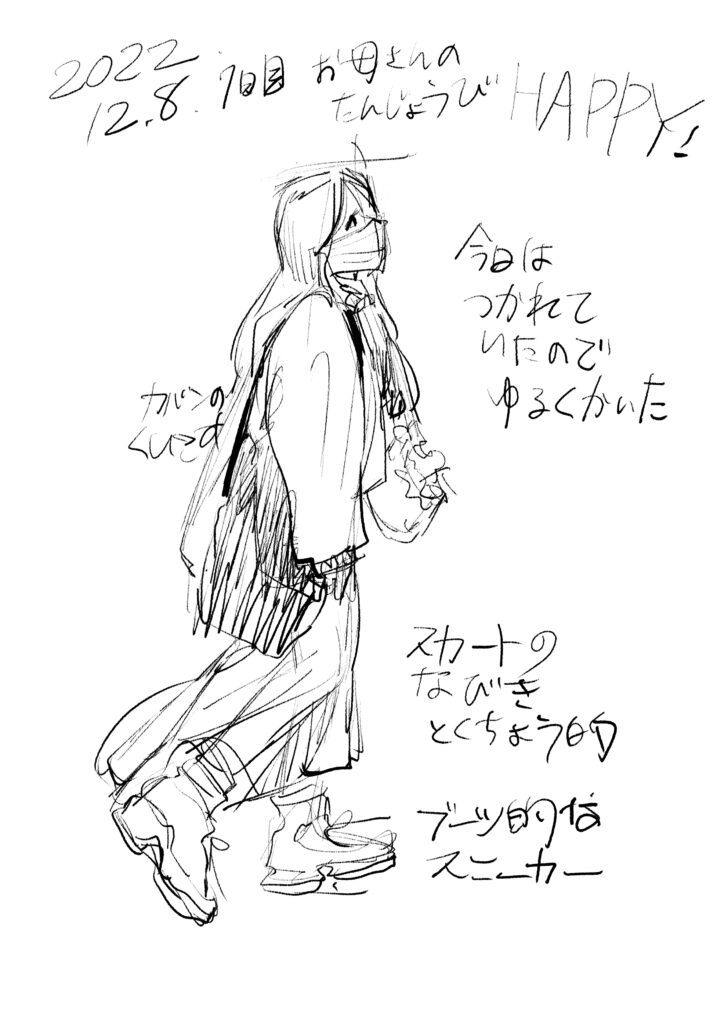 2022
12.8. 1日目 お母さんの
たんじょうび HAPPY!
今日は
つかれて
いたので
ゆるくかいた
カバンの
スカートの
なびき
とくちょう的
ブーツ的な
スニーカー